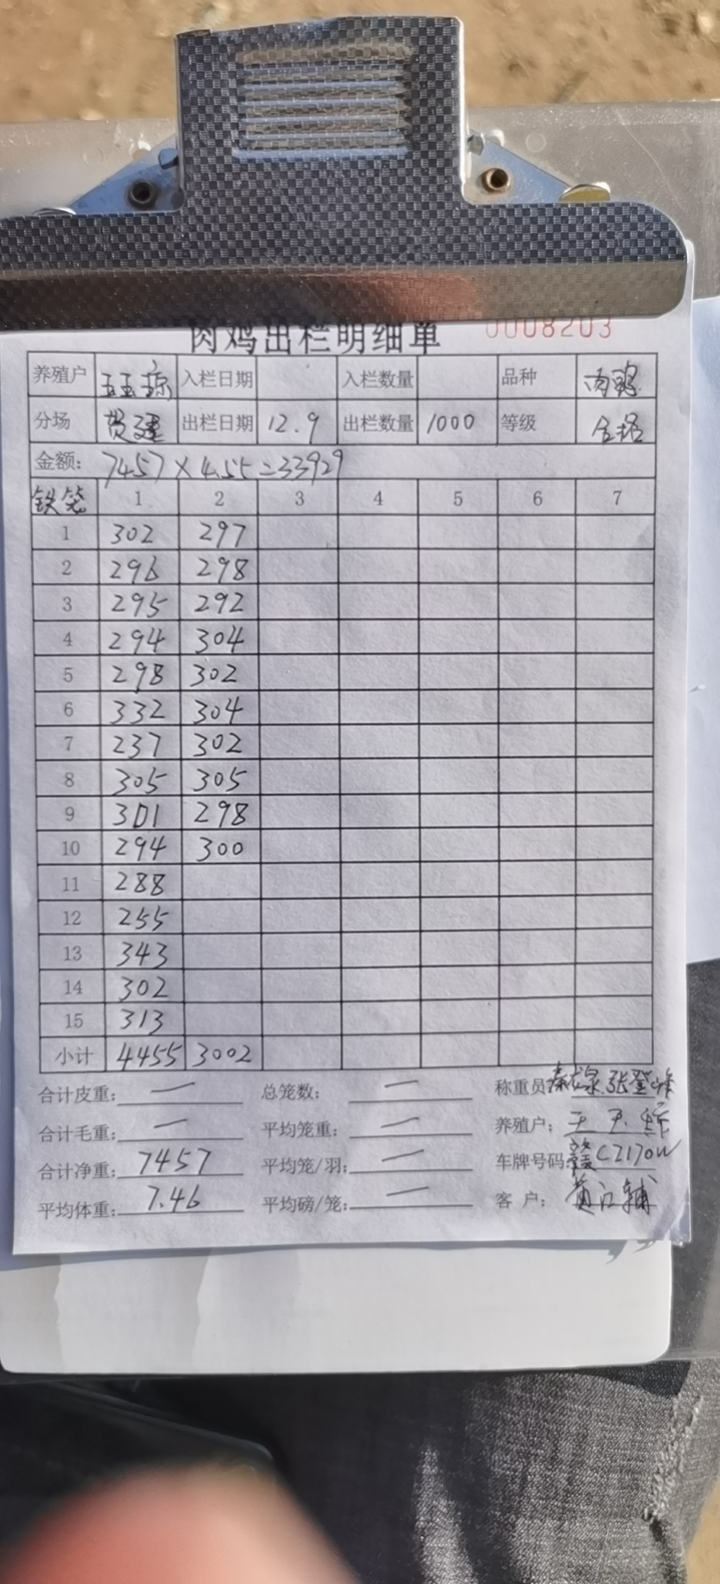 肉鸡出栏明细单 0008203
养殖户 王玉琼 入栏日期 入栏数量 品种 肉鸡
分场 贯建 出栏日期 12.9 出栏数量 1000 等级 合格
金额: 7457×4.55=33929
铁笼 1 2 3 4 5 6 7
1 302 297
2 296 298
3 295 292
4 294 304
5 298 302
6 332 304
7 237 302
8 305 305
9 301 298
10 294 300
11 288
12 255
13 343
14 302
15 313
小计 4455 3002
合计皮重: — 总笼数: — 称重员
合计毛重: — 平均笼重: — 养殖户:
合计净重: 7457 平均笼/羽: — 车牌号码 赣C2170W
平均体重: 7.46 平均磅/笼: — 客户: 黄江辅